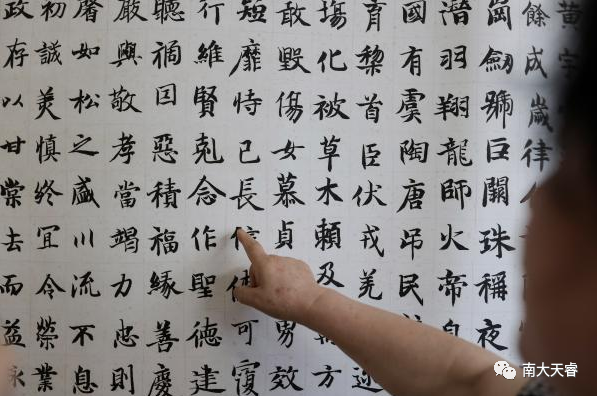 黄宇
餘成歲律
崗劍號巨闕珠稱夜
潛羽翔龍師火帝
國有虞陶唐吊民
育黎首臣伏戎羌
場化被草木賴及方
敢毀傷女慕貞男效
短靡恃己長信可覆
行維賢剋念作聖德建
聽禍因惡積福緣善慶
嚴與敬孝當竭力忠則
馨如松之盛川流不息
初誠美慎終宜令榮業
政存以甘棠去而益詠
南大天睿